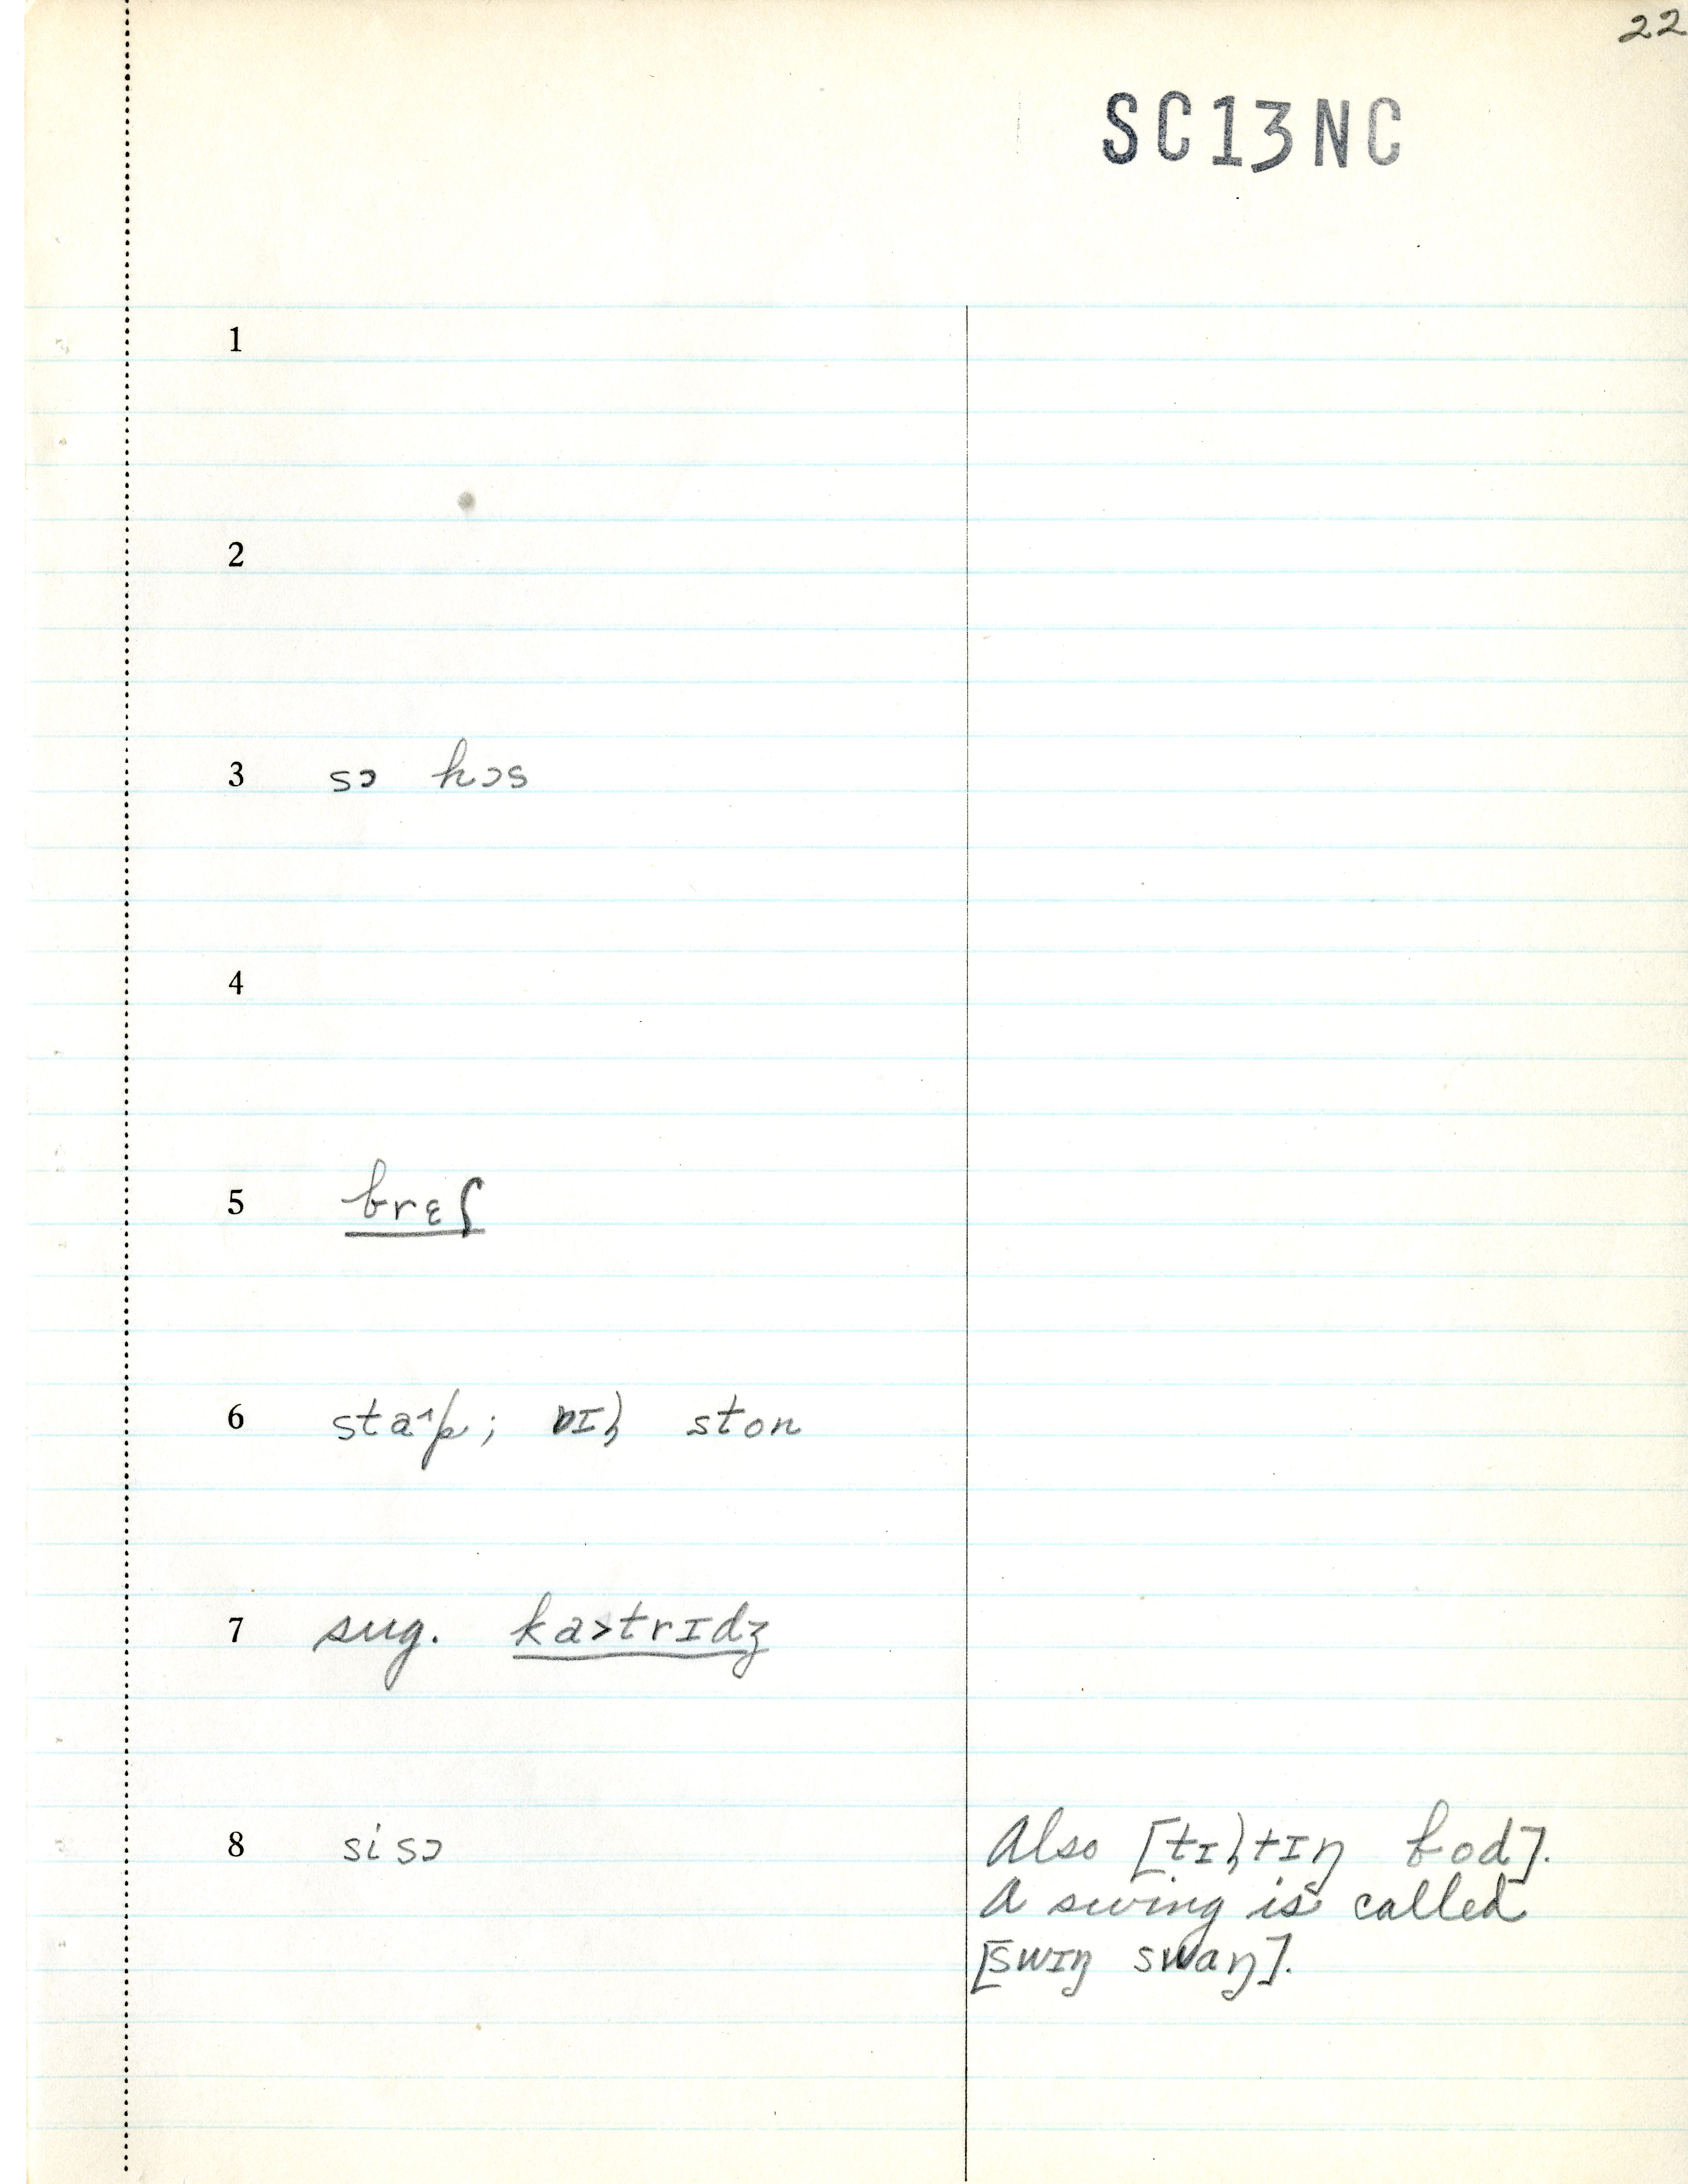 22
SC13NC
1
2
3 sɔ hɔs
4
5 brɛʃ
6 staˆp; ston
7 sug. ka>trɪdʒ
8 sisɔ
Also [tɪɫtɪŋ bod].
A swing is called
[swɪŋ swaŋ].